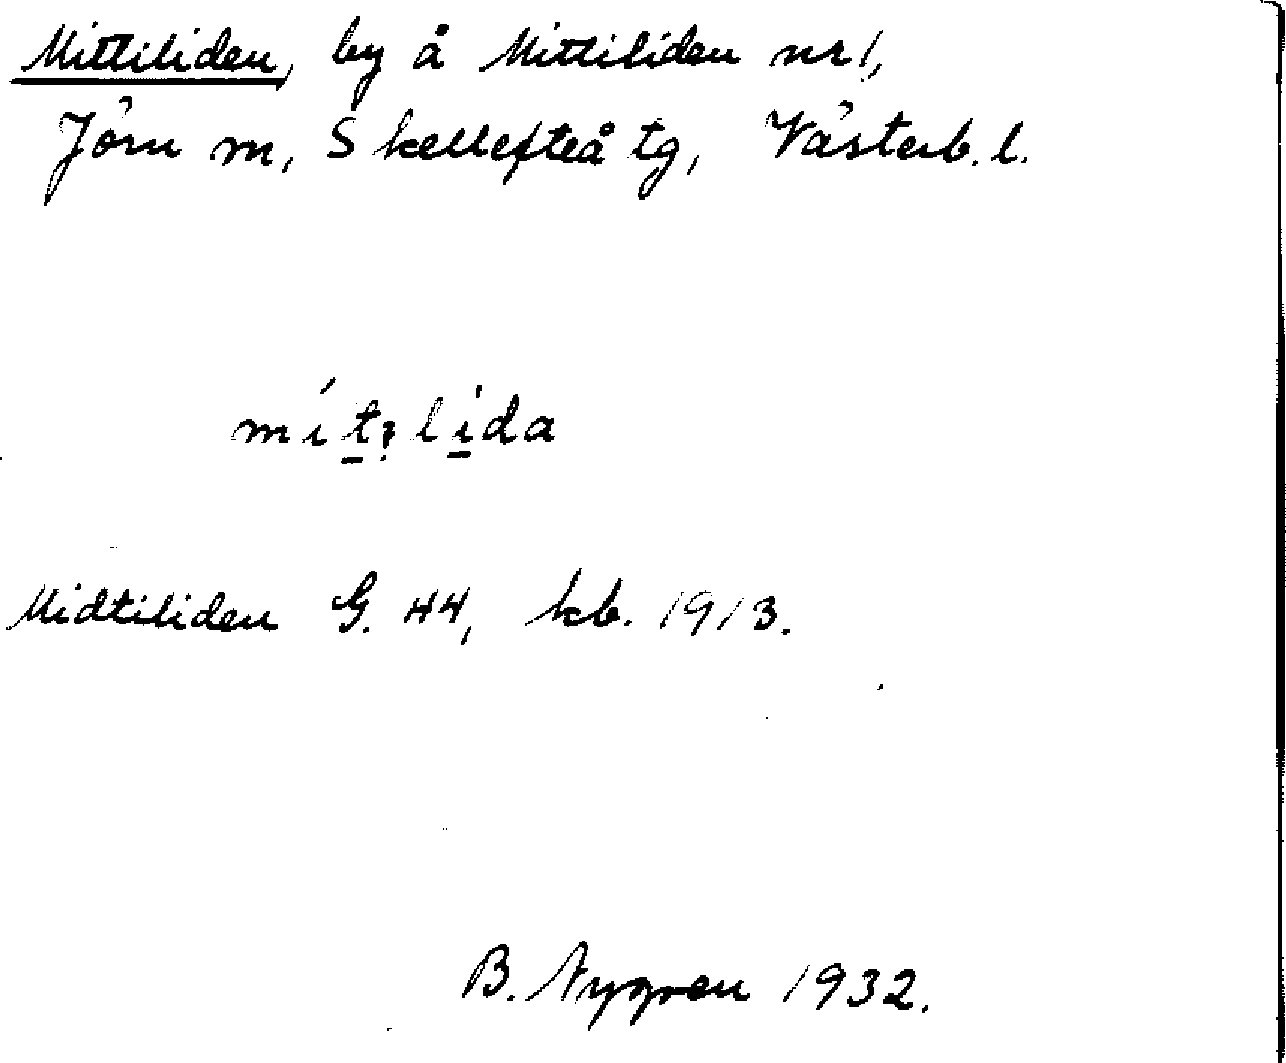 Mittiliden, by å Mittiliden nr 1,
Jörn m, Skellefteå tg, Västerb. l.
Midtiliden G. 44, kb. 1913.
B. Nygren 1932.